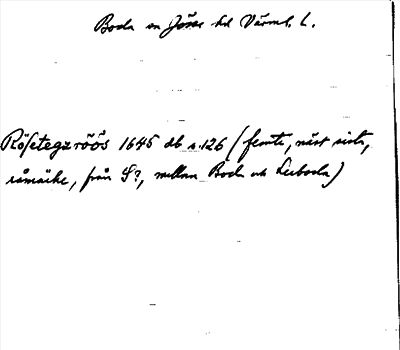 Boda sn Jösse hd Värml. L.
Rösetegzröös 1645 db s.126 (femte, näst sista,
råmärke, från S?, mellan Boda och Lerboda)